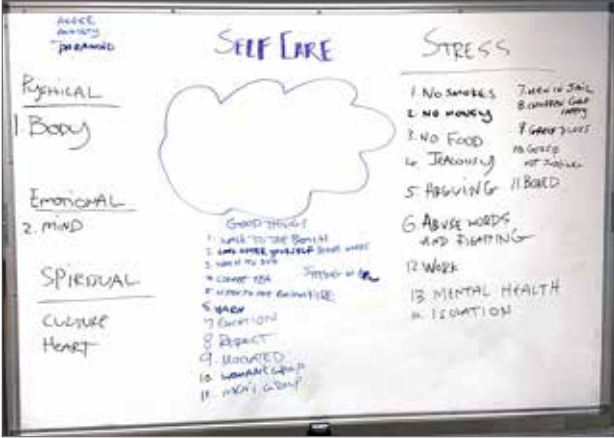 ANXIETY
PARANOID
SELF CARE
STRESS
PYSHICAL
1. BODY
EMOTIONAL
2. MIND
SPIRIDUAL
CULTURE
HEART
GOOD THINGS
1. WALK TO THE BEACH
2. LOOK AFTER YOURSELF
3.
4. COFFEE TEA
5.
6 YARN
7
8 RESPECT
9. MOTIVATED
10. WOMANS GROUP
11. MEN'S GROUP
1. NO SMOKES
2. NO MONEY
3. NO FOOD
4. JEALOUSY
5. ARGUING
6. ABUSE WORDS
AND FIGHTING
7. MEN IN JAIL
8. CHILDREN
9.
10. GOSSIP
11 BORED
12 WORK
13 MENTAL HEALTH
ISOLATION